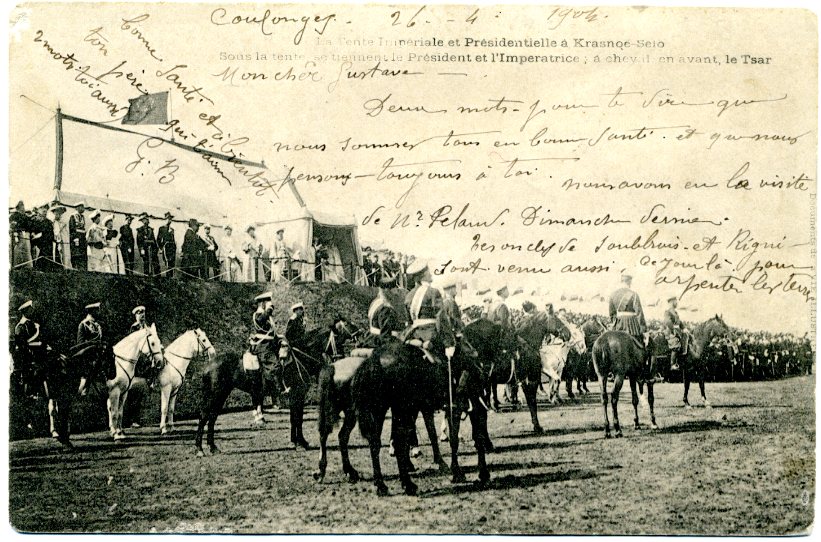 Coulonges 26 - 4 - 1904
La Tente Impériale et Présidentielle à Krasnoe-Selo
Sous la tente, se tiennent le Président et l'Imperatrice ; à cheval, en avant, le Tsar
Mon cher Gustave —
Deux mots pour te dire que
nous sommes tous en bonne Santé et que nous
pensons toujours à toi. nous avons eu la visite
de Mr Pelaud Dimanche dernier.
et Rigni
Sont venu aussi, ce jour là pour
arpenter les terres
2 mots toi aussi
bonne Santé et à bientôt
ton père qui t'aime
G. B